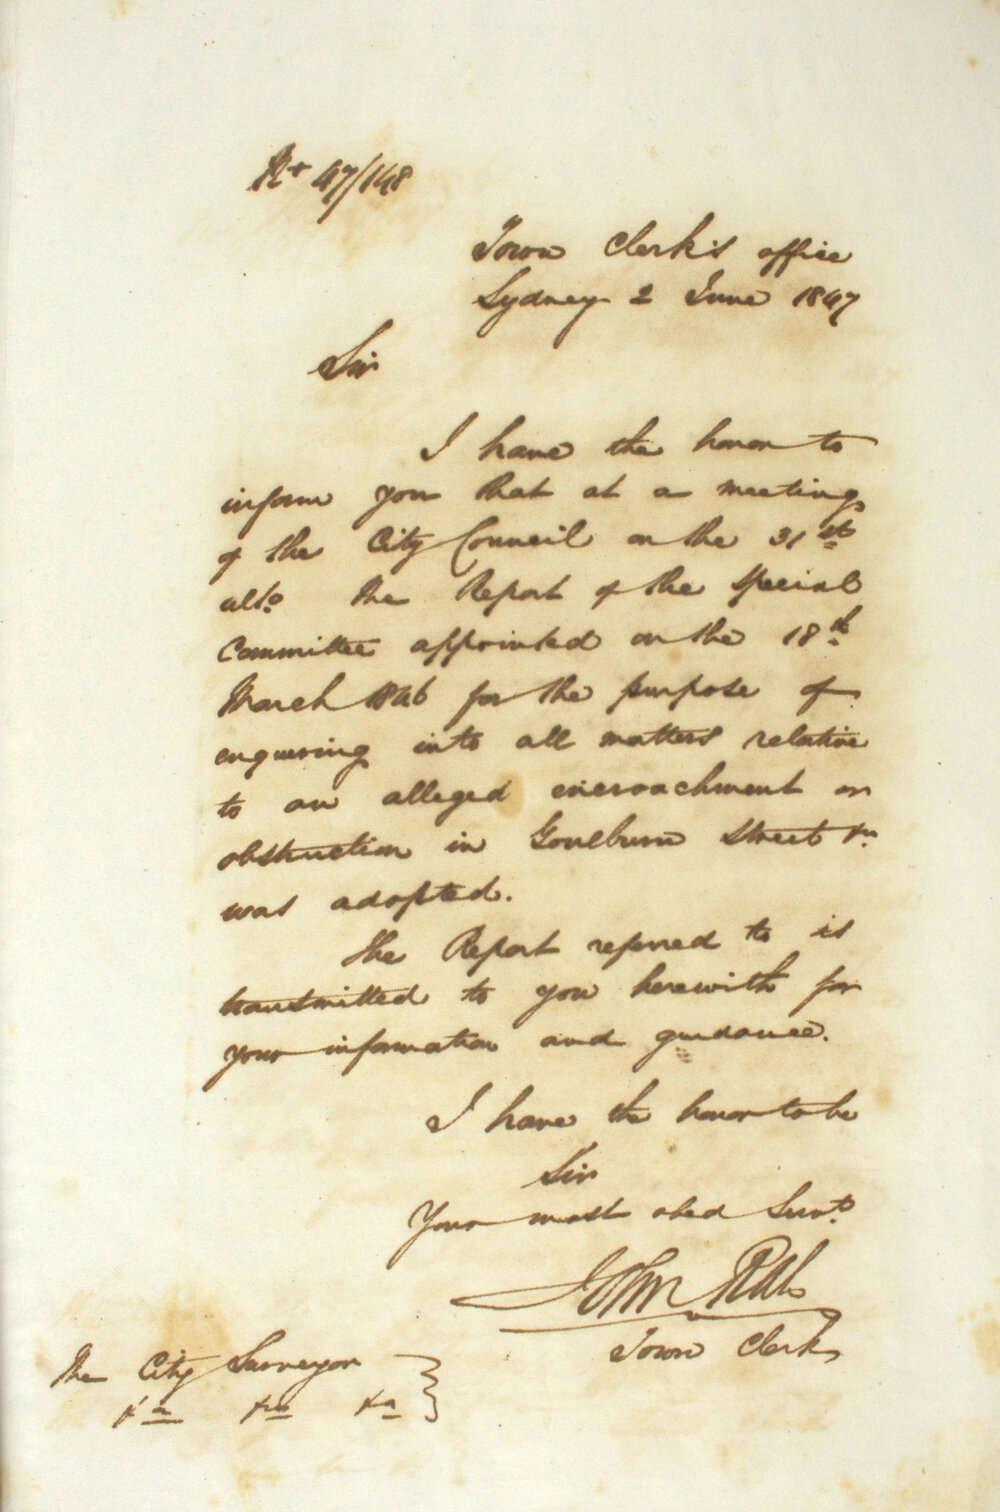 47/148
Town Clerk's office
Sydney 2 June 1847
Sir
I have the honor to
inform you that at a meeting
of the City Council on the 31st
ulto the Report of the Special
Committee appointed on the 18th
March 1846 for the purpose of
enquering into all matters relative
to an alleged encroachment or
obstruction in Goulburn Street &c
was adopted.
The Report referred to is
transmitted to you herewith for
your information and guidance.
I have the honor to be
Sir
Your most obed Servt
John Rae
Town Clerk
The City Surveyor
&c &c &c